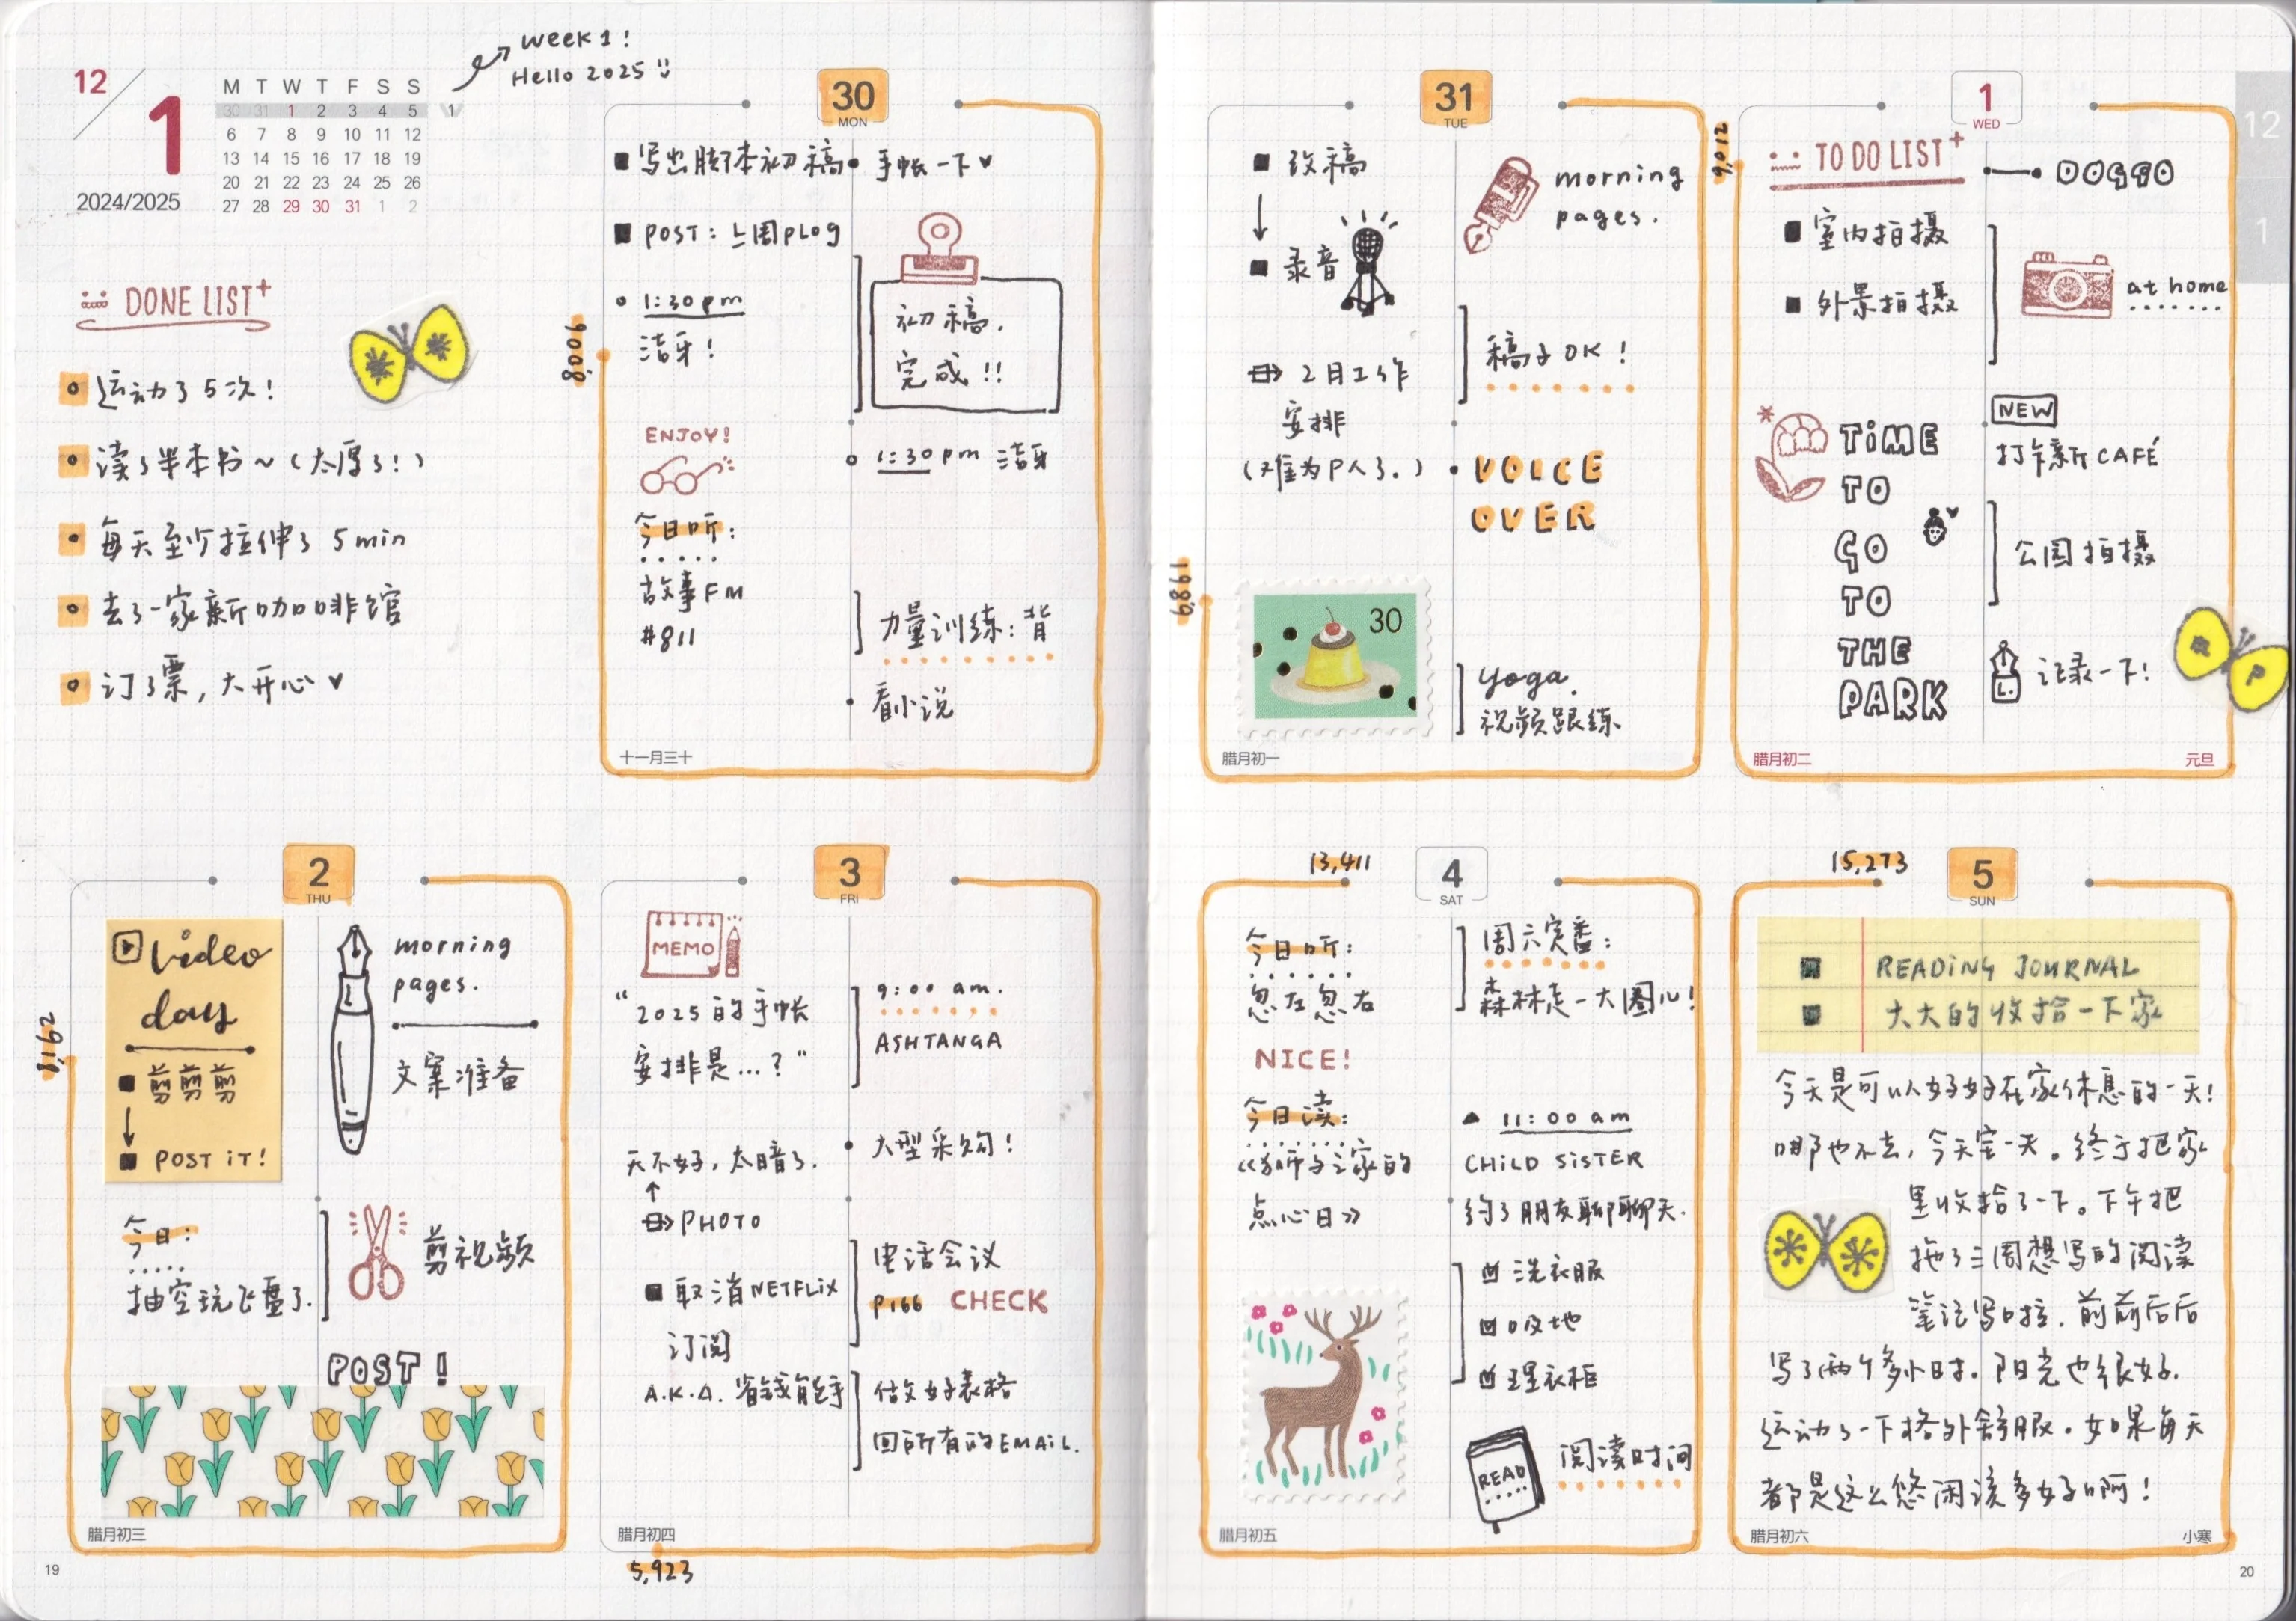 week 1!
Hello 2025
12
1
2024/2025
M T W T F S S
30 31 1 2 3 4 5 1
6 7 8 9 10 11 12
13 14 15 16 17 18 19
20 21 22 23 24 25 26
27 28 29 30 31 1 2
DONE LIST
运动了5次!
读了半本书~(太厚了!)
每天至少拉伸了 5min
去了一家新咖啡馆
订了票,大开心
30
MON
写出脚本初稿
POST: 上周PLOG
1:30pm
洁牙!
8,006
ENJOY!
今日听:
故事FM
#811
手帐一下
初稿,
完成!!
1:30pm 洁牙
力量训练:背
看小说
十一月三十
31
TUE
改稿
录音
2月工作
安排
(难为P人了.)
1,989
30
morning
pages.
稿子OK!
VOICE
OVER
yoga.
视频跟练
腊月初一
1
WED
9,012
TO DO LIST
室内拍摄
外景拍摄
TIME
TO
GO
TO
THE
PARK
DOGGO
at home
NEW
打卡新CAFÉ
公园拍摄
记录一下!
腊月初二
元旦
12
1
2
THU
8,162
video
day
剪剪剪
POST IT!
今日:
抽空玩飞盘了.
morning
pages.
文案准备
剪视频
POST!
腊月初三
19
3
FRI
MEMO
"2025的手帐
安排是...?"
天不好,太暗了.
PHOTO
取消NETFLIX
订阅
A.K.A. 省钱能手
9:00 am.
ASHTANGA
大型采购!
电话会议
P166 CHECK
做好表格
回所有的EMAIL.
腊月初四
5,923
13,411
4
SAT
今日听:
忽左忽右
NICE!
今日读:
点心日》
周六完番:
森林走一大圈儿!
11:00 am
CHILD SISTER
约了朋友聊聊天.
洗衣服
吸地
理衣柜
READ
阅读时间
腊月初五
15,273
5
SUN
READING JOURNAL
大大的收拾一下家
今天是可以好好在家休息的一天!
哪也不去,今天宅一天。终于把家
里收拾了一下。下午把
拖了三周想写的阅读
笔记写啦.前前后后
写了两个多小时.阳光也很好.
运动了一下格外舒服.如果每天
都是这么悠闲该多好啊!
腊月初六
小寒
20